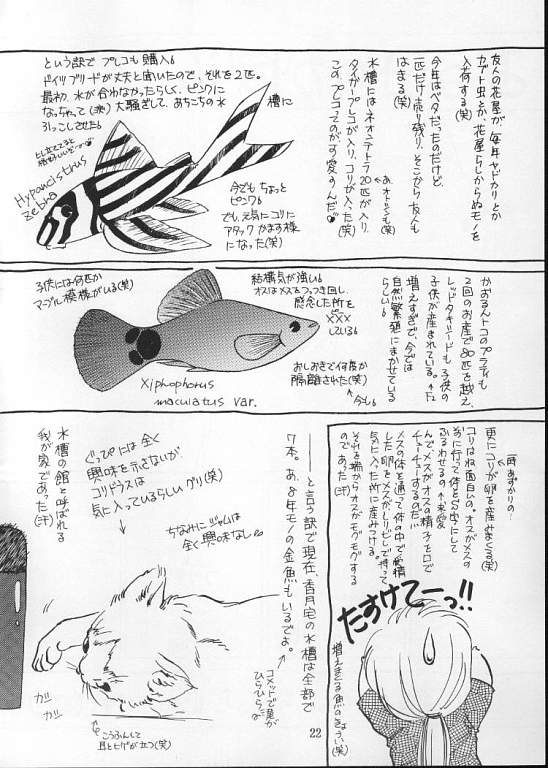 友人の花屋が、毎年ヤドカリとか
カブト虫とか、花屋らしからぬモノを
入荷する(笑)
今年はベタだったのだけど
一匹だけ売り残り、そこから友人も
はまる(笑)
水槽にはネオンテトラ20匹が入り、
あ、オトシンも(笑)
タイガープレコが入り、コリが入った(笑)
この、プレコってのがす愛すんだ
という訳で プレコも購入。
ドイツブリードが丈夫と聞いたので、それを2匹。
最初、水が合わなかったらしく、ピンクに
なっちゃって(涙)大騒ぎして、あちこちの水
槽に
引っこしさせた。
Hypancistrus
Zebra
今でもちょっと
ピンク。
でも、元気にコリに
アタックかます様に
なった(笑)
かおるんトコのプラティも
2回のお産で80匹を越え、
レッドタキシードも子供の
子供が産まれている。
↑F2
増えすぎで、今では
自然繁殖にまかせている
らしい。
結構気が強い。
オスはメスをつつき回し、
懸念した所を
×××
している。
おしおきで何度か
隔離された(笑)
↑今も。
子供には何匹か
マーブル模様がいる(笑)
Xiphophorus
maculatus var.
一時あずかりの↑
更にコリが卵を産せまくる(笑)
コリはね面白いの。オスがメスの
前に行って体をS字にして
ぶるわせるの ↑求愛
んでメスがオスの精子を口で
チューチューするのだ!!
メスの体を通って体の中で受精
した卵をメスがしりビレで持って
気に入った所に産みつける。
それを端からオスがモグモグする
のであった(汗)
たすけてーっ!!
増えまくる魚のきょうい(笑)
――と言う訳で現在、香月宅の水槽は全部で
7本。あ、8年モノの金魚もいるでよ。
コメットで尾が
ひらひらなる
ぐっぴには全く
興味を示さないが、
コリドラスは
気に入っているらしいグリ(笑)
ちなみにジャムは
全く興味なし。
水槽の館と呼ばれる
我が家であった(汗)
ガガ
ガガ
こうふんして
耳とヒゲが立つ(笑)
22